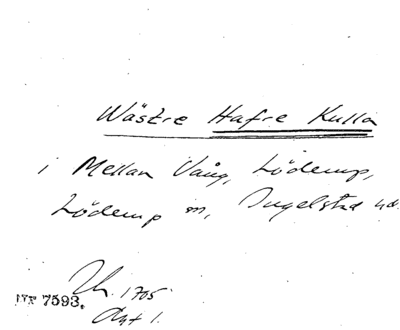 Wästre Hafre Kulla
i Mellan Vång, Löderup,
Löderup sn, Ingelstad hd.
1705
Akt 1.
Nr 7593.